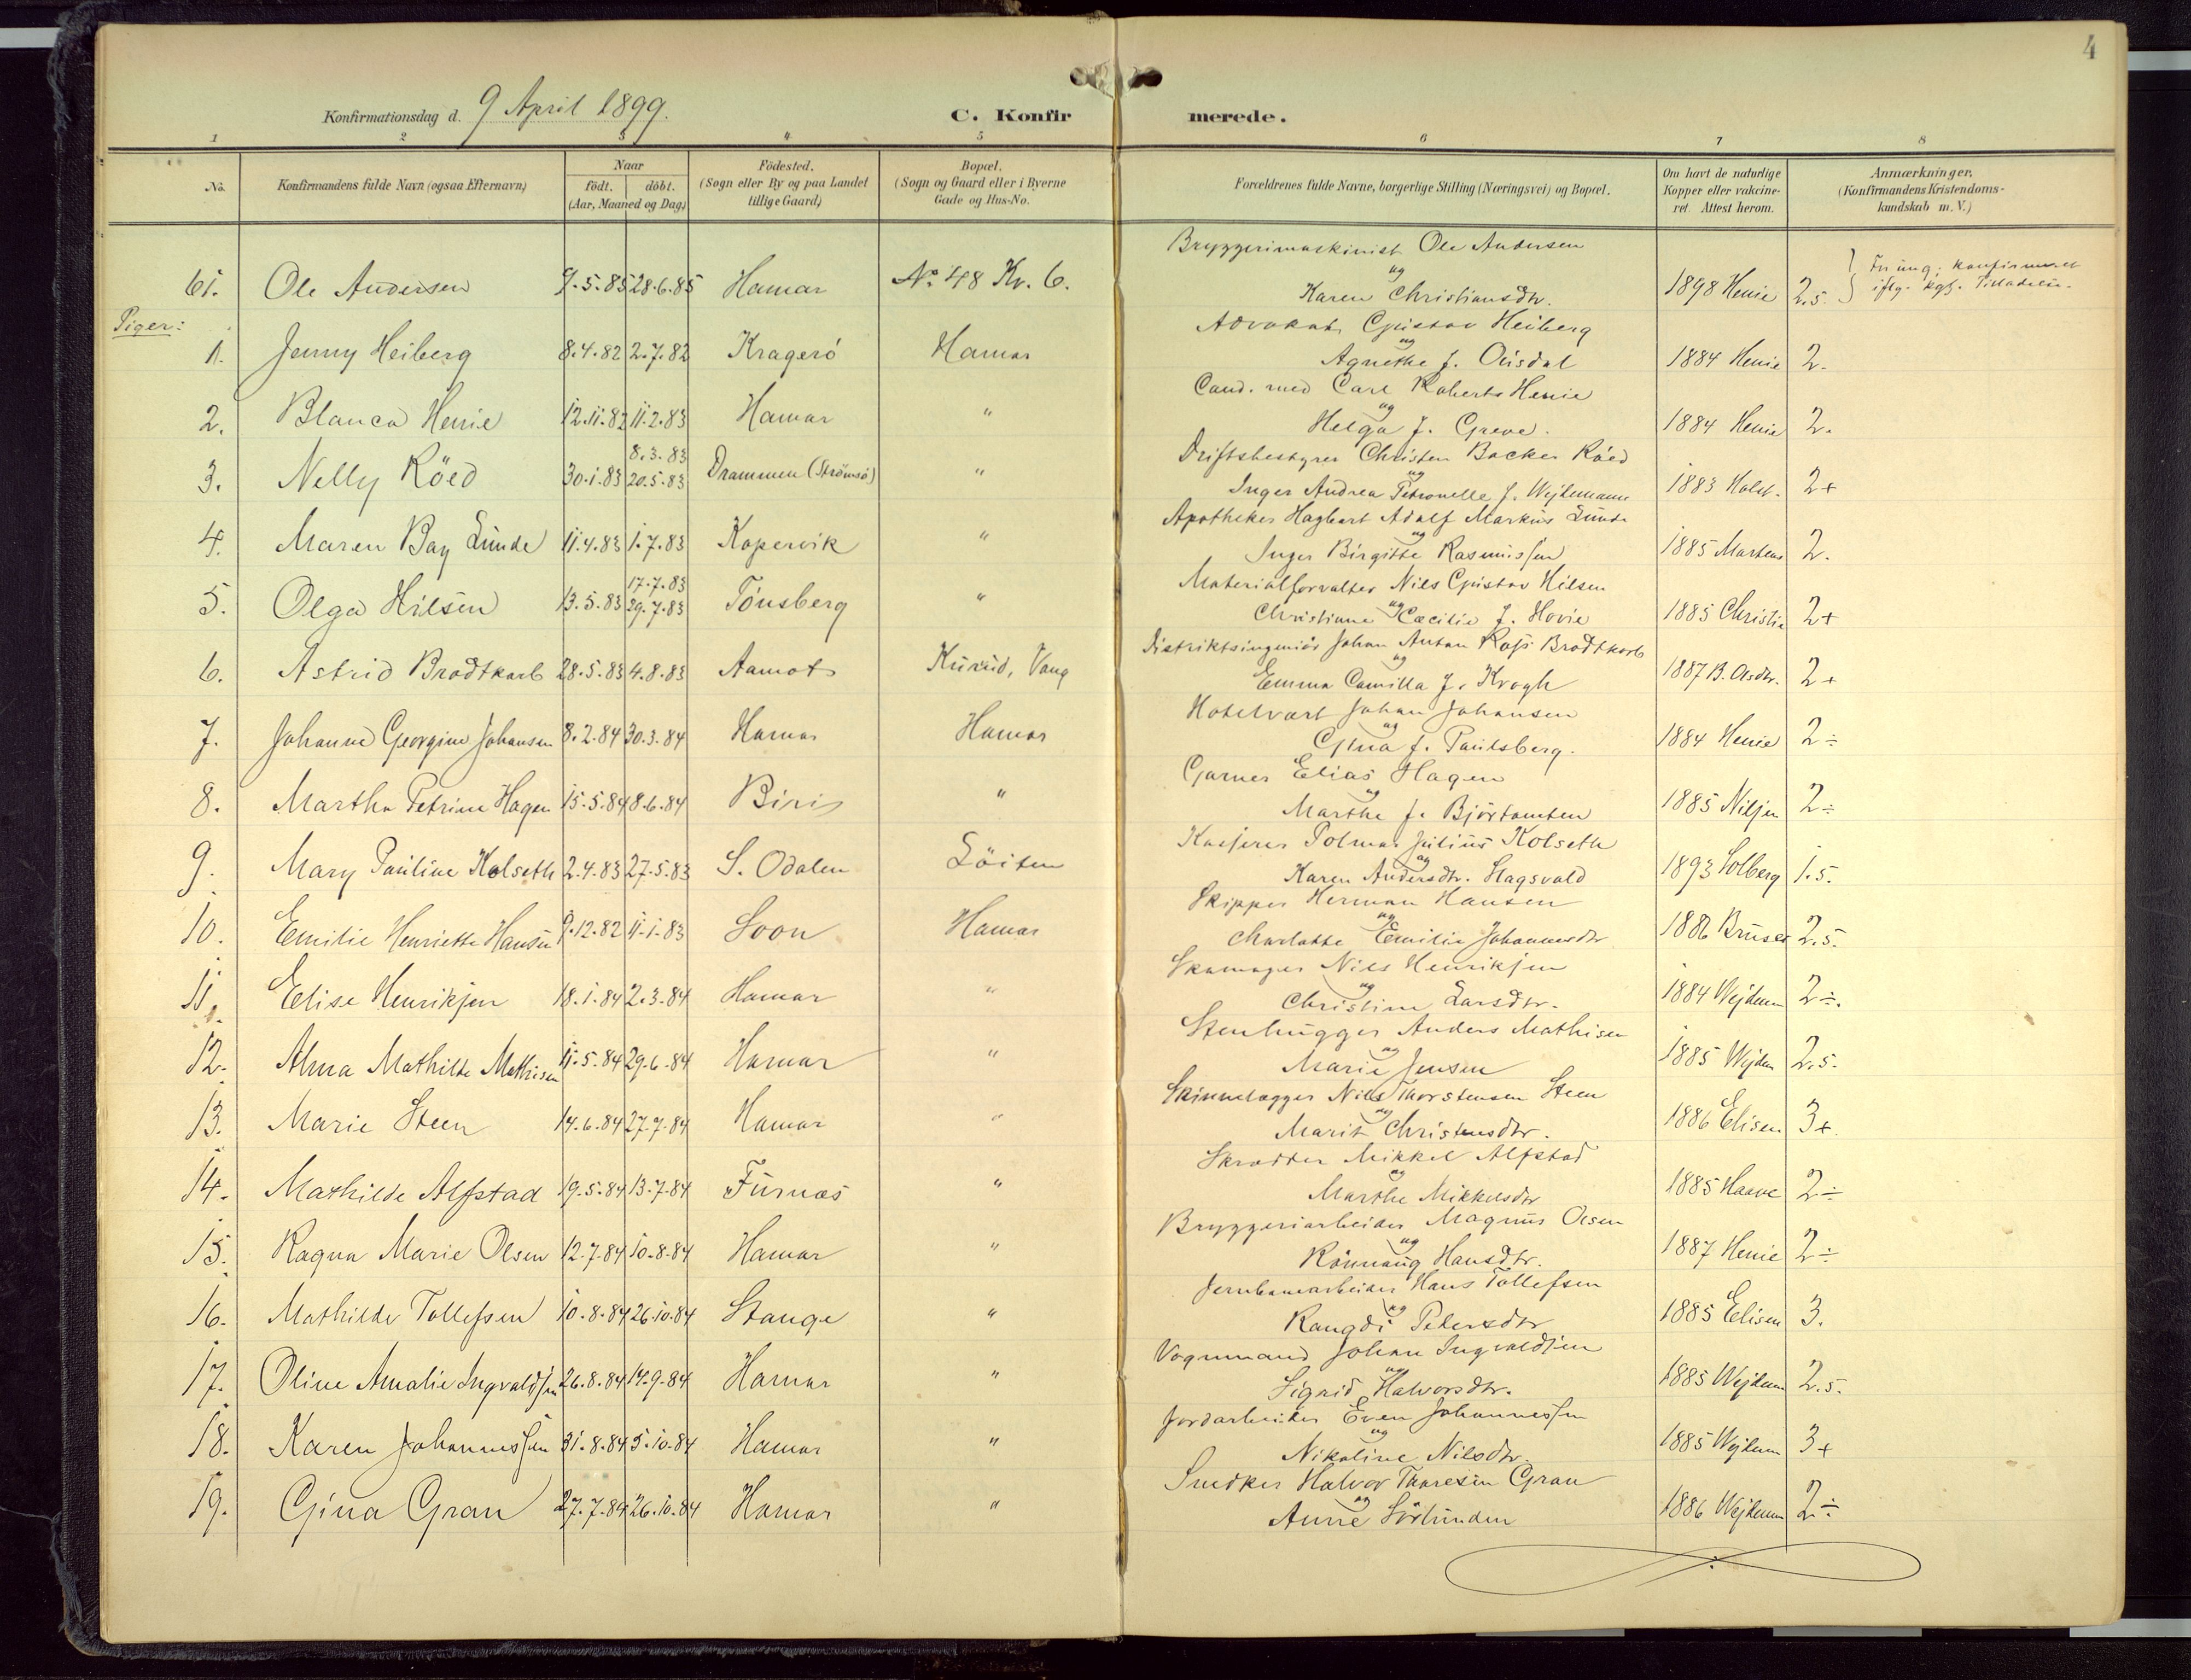 4
Konfirmationsdag d. 9 April 1899.
C. Konfirmerede.
1 2 3 4 5 6 7 8
No. Konfirmandens fulde Navn (ogsaa Efternavn) Naar født. døbt. (Aar, Maaned og Dag.) Födested. (Sogn eller By og paa Landet tillige Gaard) Bopæl. (Sogn og Gaard eller i Byerne Gade og Hus-No. Forældrenes fulde Navne, borgerlige Stilling (Næringsvei) og Bopæl. Om havt de naturlige Kopper eller vakcineret. Attest herom. Anmærkninger, (Konfirmandens Kristendomskundskab m. V.)
61. Ole Andersen 9.5.85 28.6.85 Hamar No. 48 Kv. 6. Bryggerimaskinist Ole Andersen og Karen Christiansdtr. 1898 Henie 2.5 For ung; konfirmeret iflg. kgl. Tilladelse.
Piger:
1. Jenny Heiberg 8.4.82 2.7.82 Kragerö Hamar Advokat Gustav Heiberg og Agnethe f. Ousdal 1884 Henie 2.
2. Blanca Henie 12.11.82 11.2.83 Hamar " Cand. med Carl Roberts Henie og Helga f. Greve. 1884 Henie 2.
3. Nelly Röed 30.1.83 8.3.83 20.5.83 Drammen (Strömsö) " Driftsbestyrer Christen Backer Röed og Inger Andrea Petronelle f. Wejdemann 1883 Holst. 2+
4. Maren Bay Lunde 11.4.83 1.7.83 Kopervik " Apotheker Hagbart Adolf Markus Lunde og Inger Birgitte Rasmussen 1885 Martens 2.
5. Olga Hilsen 13.5.83 17.7.83 29.7.83 Tönsberg " Materialforvalter Nils Gustav Hilsen og Christiane Cæcilie f. Hovie 1885 Christie 2+
6. Astrid Brodtkorb 28.5.83 4.8.83 Aamot Kurud, Vang Distriktsingeniör Johan Anton Ross Brodtkorb og Emma Camilla f. Krogh 1887 B. Olsdtr. 2+
7. Johanne Georgine Johansen 8.2.84 30.3.84 Hamar Hamar Hotelvært Johan Johansen og Gina f. Paulsberg. 1884 Henie 2÷
8. Martha Petrine Hagen 15.5.84 8.6.84 Biri " Garver Elias Hagen og Marthe f. Björtomten 1885 Niljen 2÷
9. Mary Pauline Kolseth 2.4.83 27.5.83 S. Odalen Löiten Kasserer Polmar Julius Kolseth og Karen Andersdtr. Slagsvold 1893 Solberg 1.5.
10. Emilie Henriette Hansen 9.12.82 11.1.83 Soon Hamar Skipper Herman Hansen og Charlotte Emilie Johannesdtr 1886 Bruser 2.5.
11. Elise Henriksen 18.1.84 2.3.84 Hamar " Skomager Nils Henriksen og Christine Larsdtr. 1884 Wejdem 2÷.
12. Alma Mathilde Mathisen 11.5.84 29.6.84 Hamar " Stenhugger Anders Mathisen og Marie Jensen 1885 Wejdem 2.5.
13. Marie Steen 14.6.84 27.7.84 Hamar " Skinnelægger Nils Thorstensen Steen og Marit Christensdtr. 1886 Elisen 3+
14. Mathilde Alfstad 19.5.84 13.7.84 Furnæs " Skrædder Mikkel Alfstad og Marthe Mikkelsdtr 1885 Haave 2÷
15. Ragna Marie Olsen 12.7.84 10.8.84 Hamar " Bryggeriarbeider Magnus Olsen og Rönnaug Hansdtr. 1887 Henie 2÷
16. Mathilde Tollefsen 10.8.84 26.10.84 Stange " Jernbanearbeider Hans Tollefsen og Rangdi Petersdtr 1885 Elisen 3.
17. Oline Amalie Ingvaldsen 26.8.84 14.9.84 Hamar " Vognmand Johan Ingvaldsen og Sigrid Halvorsdtr. 1885 Wejdem 2.5.
18. Karen Johannessen 31.8.84 5.10.84 Hamar " Jordarbeider Even Johannessen og Nikoline Nilsdtr. 1885 Wejdem 3+
19. Gina Gran 27.7.84 26.10.84 Hamar " Snedker Halvor Thoresen Gran og Anne Sörlunden 1886 Wejdem 2÷